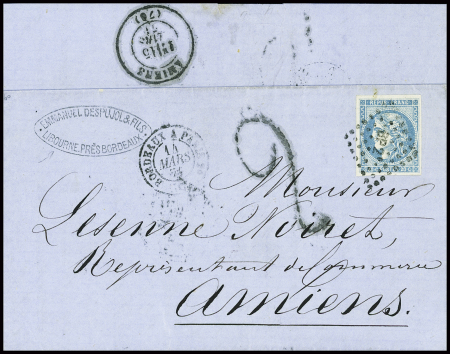 AMIENS
15
MARS
71
(76)
EMMANUEL DESPUJOL & FILS
LIBOURNE, PRÈS BORDEAUX
BORDEAUX A PARIS
14
MARS
71
REPUB. FRANC.
2
Monsieur
Lesenne Noiret,
Représentant de Commerce
Amiens.